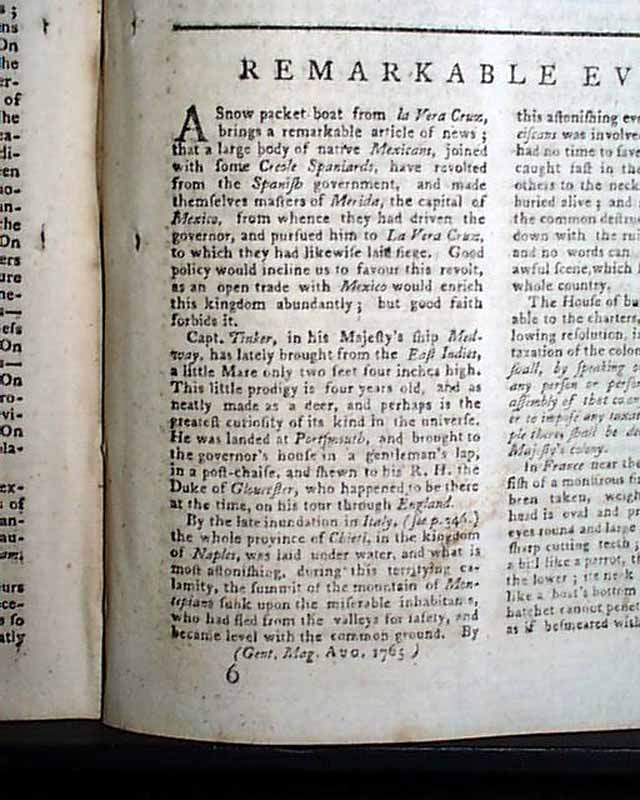 ns
On
he
er-
of
he
ea-
di-
een
no-
an-
the
On
ers
ure
ne-
s—
eſs
On
s—
On
ro-
evi-
On
pla-
ex-
s of
an-
au-
am.
eurs
ece-
s ſo
atly
REMARKABLE EV
A Snow packet boat from la Vera Cruz,
brings a remarkable article of news;
that a large body of native Mexicans, joined
with ſome Creole Spaniards, have revolted
from the Spaniſh government, and made
themſelves maſters of Merida, the capital of
Mexico, from whence they had driven the
governor, and purſued him to La Vera Cruz,
to which they had likewiſe laid ſiege. Good
policy would incline us to favour this revolt,
as an open trade with Mexico would enrich
this kingdom abundantly; but good faith
forbids it.
Capt. Tinker, in his Majeſty's ſhip Med-
way, has lately brought from the Eaſt Indies,
a little Mare only two feet four inches high.
This little prodigy is four years old, and as
neatly made as a deer, and perhaps is the
greateſt curioſity of its kind in the univerſe.
He was landed at Portſmouth, and brought to
the governor's houſe in a gentleman's lap,
in a poſt-chaiſe, and ſhewn to his R. H. the
Duke of Glouceſter, who happened to be there
at the time, on his tour through England.
By the late inundation in Italy, (ſee p. 346.)
the whole province of Chieti, in the kingdom
of Naples, was laid under water, and what is
moſt aſtoniſhing, during this terrifying ca-
lamity, the ſummit of the mountain of Mon-
tepiano ſunk upon the miſerable inhabitants,
who had fled from the valleys for ſafety, and
became level with the common ground. By
(Gent. Mag. AUG. 1765.)
6
this aſtoniſhing eve
ciſcans was involve
had no time to ſave
caught faſt in the
others to the neck
buried alive; and
the common deſtru
down with the rui
and no words can
awful ſcene, which
whole country.
The Houſe of bu
able to the charters,
lowing reſolution, i
taxation of the colon
ſhall, by ſpeaking o
any perſon or perſo
aſſembly of that colon
er to impoſe any taxat
ple there, ſhall be de
Majeſty's colony.
In France near the
fiſh of a monſtrous ſi
been taken, weigh
head is oval and pr
eyes round and large
ſharp cutting teeth;
a bill like a parrot, th
the lower; its neck
like a boat's bottom
hatchet cannot penet
as if beſmeared with